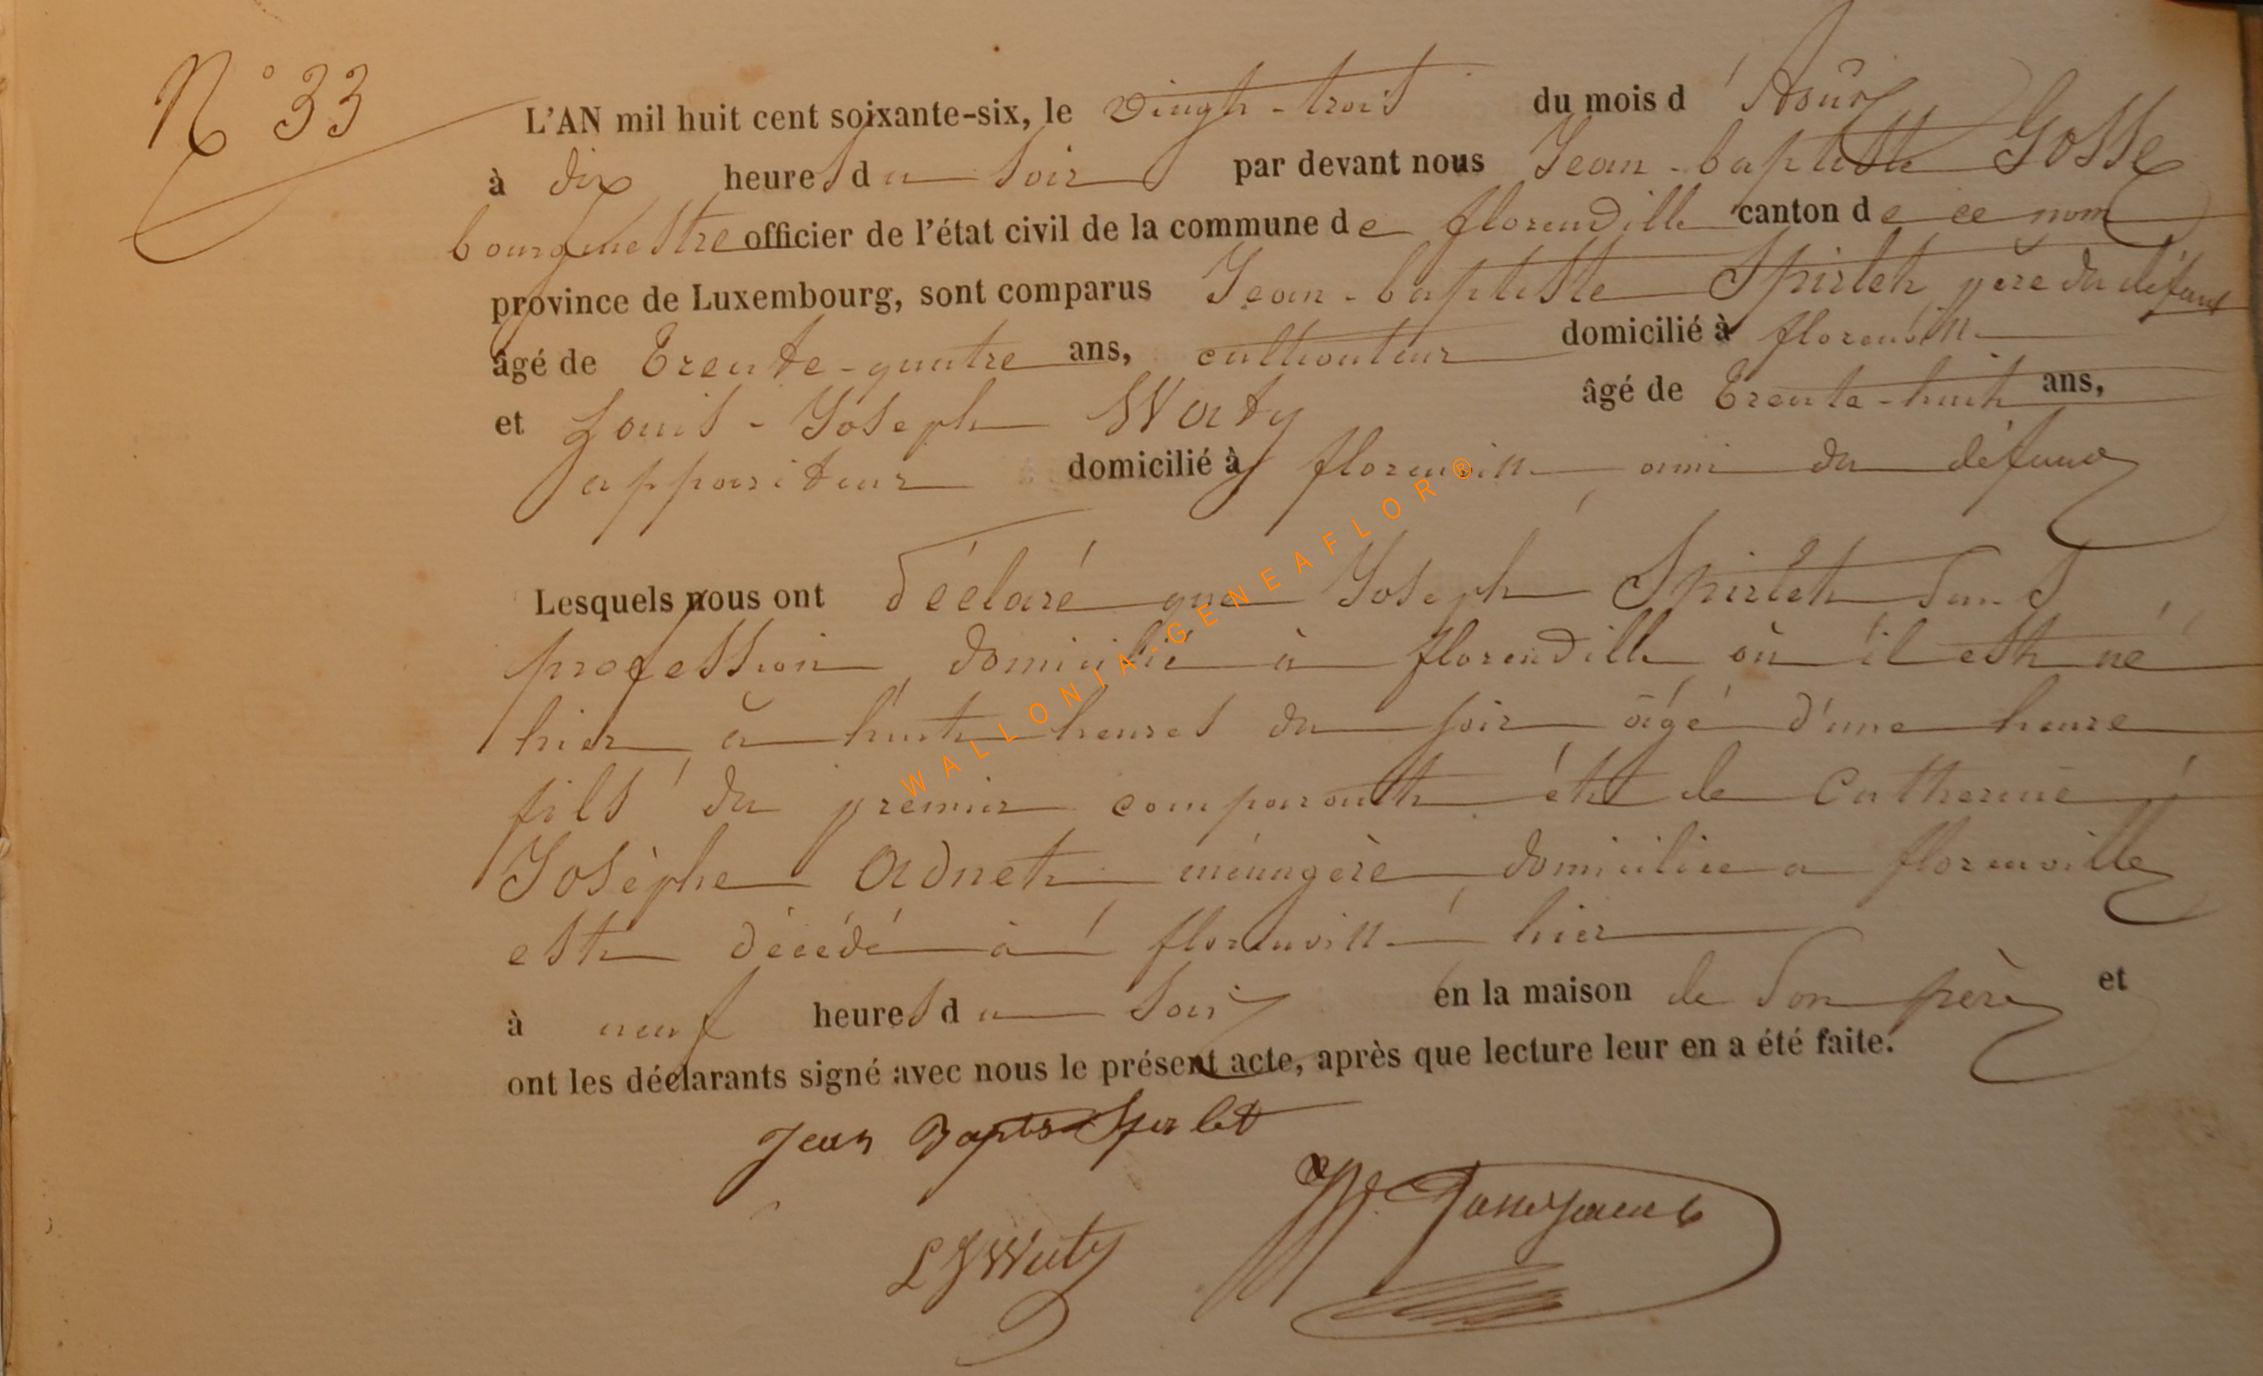 N° 33
L'AN mil huit cent soixante-six, le vingt-trois du mois d'Août
à dix heures du soir par devant nous Jean-baptiste Gosse
bourgmestre officier de l'état civil de la commune de florenville canton de ce nom
province de Luxembourg, sont comparus Jean-baptiste Spirlet père du défunt
âgé de Trente-quatre ans, cultivateur domicilié à florenville
et Louis-Joseph Waty âgé de Trente-huit ans,
appariteur domicilié à florenville ami du défunt
Lesquels nous ont déclaré que Joseph Spirlet sans
profession, domicilié à florenville où il est né
hier à huit heures du soir âgé d'une heure
fils du premier comparant et de Catherine
Josèphe Adnet ménagère domiciliée a florenville
est décédé à florenville hier
à neuf heures du soir en la maison de son père et
ont les déclarants signé avec nous le présent acte, après que lecture leur en a été faite.
Jean Bapts Spirlet
L J Waty
WALLONIA-GENEAFLOR®